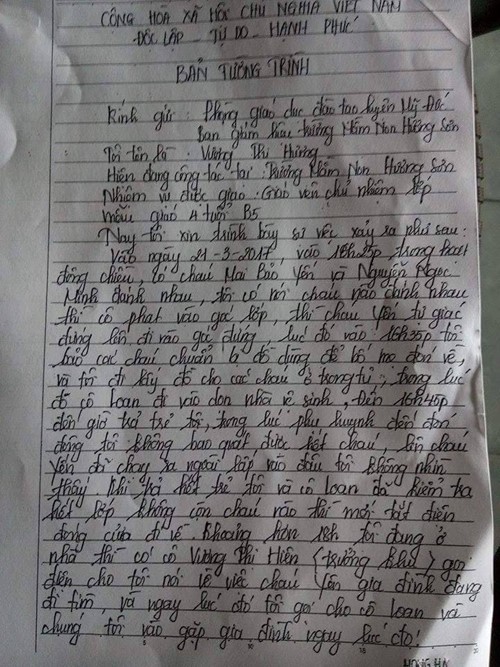 CỘNG HÒA XÃ HỘI CHỦ NGHĨA VIỆT NAM
ĐỘC LẬP - TỰ DO - HẠNH PHÚC
BẢN TƯỜNG TRÌNH
Kính gửi : Phòng giáo dục đào tạo huyện Mỹ Đức
Ban giám hiệu trường Mầm Non Hương Sơn
Tôi tên là : Vương Thị Hương
Hiện đang công tác tại : Trường Mầm Non Hương Sơn
Nhiệm vụ được giao : Giáo viên chủ nhiệm lớp
mẫu giáo 4 tuổi B5
Nay tôi xin trình bày sự việc xảy ra như sau:
Vào ngày 21-3-2017, vào 16h25p, trong hoạt
động chiều, có cháu Mai Bảo Yến và Nguyễn Ngọc
Minh đánh nhau, tôi có nói cháu nào đánh nhau
thì cô phạt vào góc lớp, thì cháu Yến tự giác
đứng lên đi vào góc đứng, lúc đó vào 16h35p tôi
bảo các cháu chuẩn bị đồ dùng để bố mẹ đón về,
và tôi đi lấy đồ cho các cháu ở trong tủ, trong lúc
đó cô Loan đi vào dọn nhà vệ sinh. Đến 16h40p
đến giờ trả trẻ tôi, trong lúc phụ huynh đến đón
đông tôi không bao quát được hết cháu lên cháu
Yến đi chạy ra ngoài lớp vào đâu tôi không nhìn
thấy. Khi trả hết trẻ tôi và cô Loan đã kiểm tra
hết lớp không còn cháu nào thì mới tắt điện
đóng cửa đi về. Khoảng hơn 18h tôi đang ở
nhà thì có cô Vương Thị Hiên (trưởng khu) gọi
điện cho tôi nói về việc cháu Yến gia đình đang
đi tìm, và ngay lúc đó tôi gọi cho cô Loan và
chúng tôi vào gặp gia đình ngay lúc đó!
HONG HA